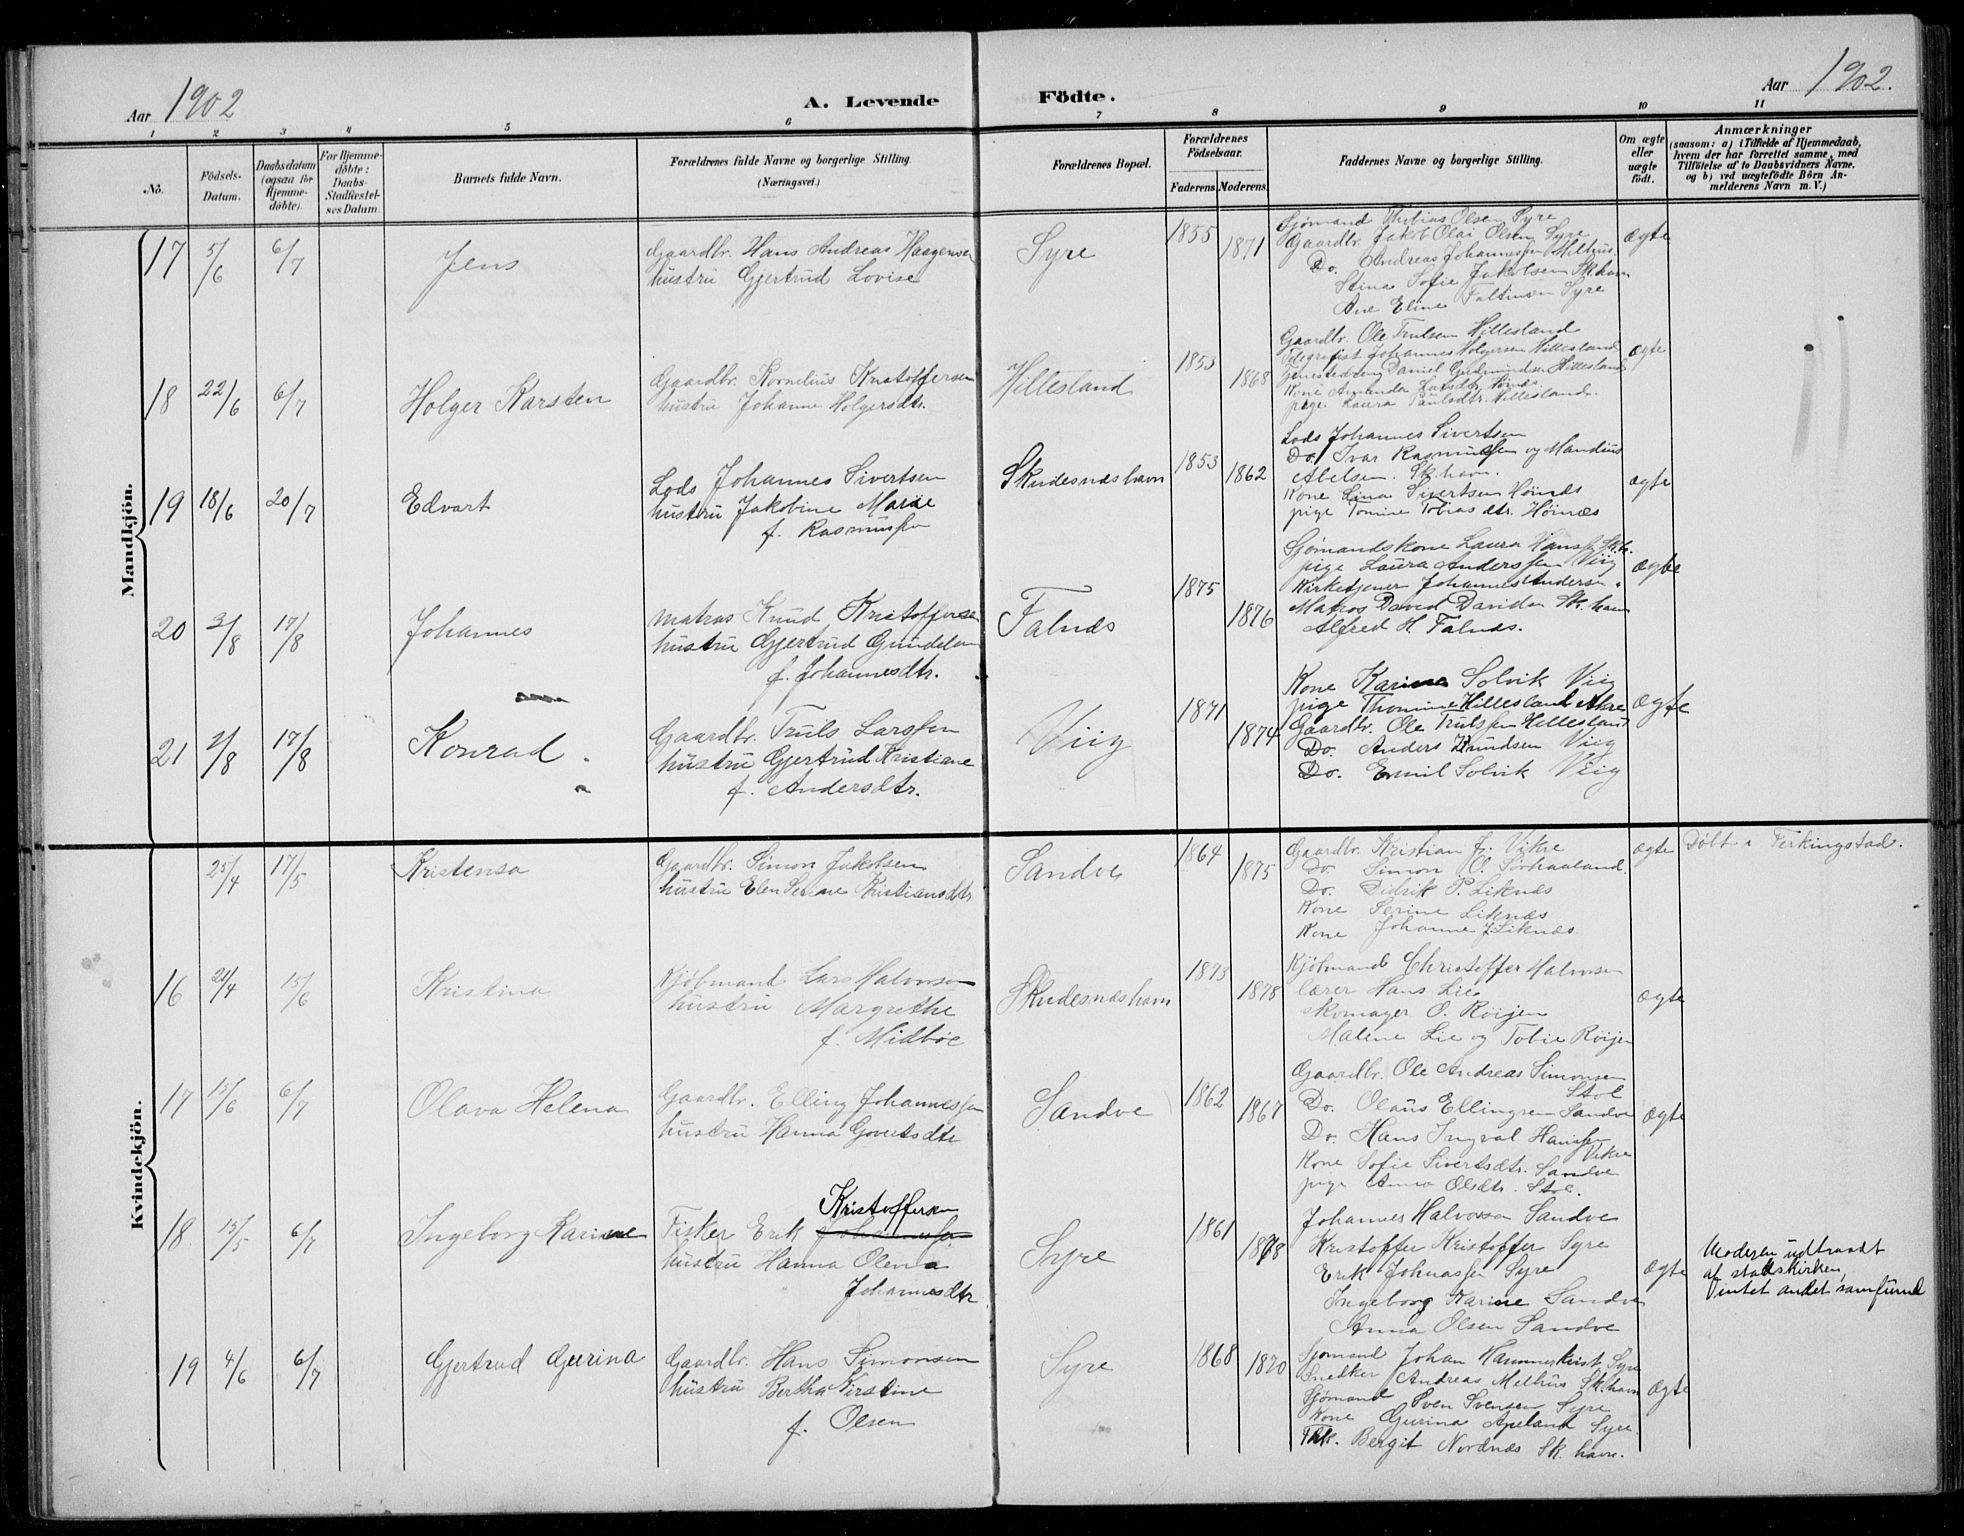 Aar 1902
A. Levende Födte.
Aar 1902.
1 2 3 4 5 6 7 8 9 10 11
No.
Födsels-Datum.
Daabsdatum (ogsaa for Hjemme-döbte).
For Hjemme-döbte: Daabs-Stadfæstel-ses Datum.
Barnets fulde Navn.
Forældrenes fulde Navne og borgerlige Stilling. (Næringsvei.)
Forældrenes Bopæl.
Forældrenes Födselsaar.
Faderens Moderens.
Faddernes Navne og borgerlige Stilling.
Om ægte eller uægte födt.
Anmærkninger
(saasom: a) i Tilfælde af Hjemmedaab,
hvem der har forrettet samme, med
Tilföielse af to Daabsvidners Navne.
og b) ved uægtefödte Börn An-
melderens Navn m. V.)
Mandkjön.
17 5/6 6/7 Jens
Gaardbr. Hans Andreas Haagensen
hustru Gjertrud Lovise
Syre 1855 1871
Sjømand Thobias Olsen Syre
Gaardbr. Jakob Olai Olsen Syre
Do. Andreas Johannessen Milhus
Stina Sofie Jakobsen Sk.havn
Ane Eline Faltinsen Syre
ægte
18 22/6 6/7 Holger Karsten
Gaardbr. Kornelius Kristoffersen
hustru Johanne Holgersdtr.
Hillesland 1853 1868
Gaardbr. Ole Trulsen Hillesland
Telegrafist Johannes Holgersen Hillesland
Tjenestedreng Daniel Gudmundsen Hillesland
Kone Amanda Larsdtr. Høinæs
pige Laura Paulsdtr. Hillesland.
ægte
19 18/6 20/7 Edvart
Lods Johannes Sivertsen
hustru Jakobine Marie
f. Rasmussen
Skudesnæshavn 1853 1862
Lods Johannes Sivertsen
Do. Ivar Rasmussen og Mandius
Abelsen. Sk.havn.
Kone Lina Sivertsen Høinæs
pige Tomine Tobiasdtr. Høinæs
ægte
20 3/8 17/8 Johannes
matros Knud Kristoffersen
hustru Gjertrud Gundela
f. Johannesdtr.
Falnæs 1875 1876
Sjømandskone Laura Hansen Sk.h.
pige Laura Anderssen Viig
Kirketjener Johannes Andersen "
Matros David Davidsen Sk.havn
Alfred H. Falnæs.
ægte
21 2/8 17/8 Konrad
Gaardbr. Truls Larssen
hustru Gjertrud Kristiane
f. Andersdtr.
Viig 1871 1874
Kone Karine Solvik Viig
pige Thomine Hillesland Akre
Gaardbr. Ole Trulssen Hillesland
Do. Anders Knudsen Viig
Do. Emil Solvik Viig
ægte
Kvindekjön.
25/4 17/5 Kristensa
Gaardbr. Simon Jakobsen
hustru Elen Serene Kristiansdtr
Sandve 1864 1875
Gaardbr. Kristian J. Vikre
Do. Simon O. Sørhaaland.
Do. Didrik P. Liknæs
Kone Serine Liknæs
Kone Johanne J. Liknæs
ægte Døbt i Ferkingstad.
16 21/4 15/6 Kristina
Kjøbmand Lars Halvorsen
hustru Margrethe
f. Midbøe
Skudesnæshavn 1873 1878
Kjøbmand Christoffer Halvorsen
lærer Hans Lie
skomager O. Røijen
Malene Lie og Tobie Røijen
ægte
17 15/6 6/7 Olava Helena
Gaardbr. Elling Johannessen
hustru Hanna Govertsdtr
Sandve 1862 1867
Gaardbr. Ole Andreas Simonsen
Stol
Do. Olaus Ellingsen Sandve
Do. Hans Ingval Hanssen
Vikre
Kone Sofie Sivertsdtr. Sandve
pige Anna Olsdtr. Stol.
ægte
18 15/5 6/7 Ingeborg Karine
Kristoffersen
Fisker Erik Johannessen
hustru Hanna Olena
Johannesdtr
Syre 1861 1878
Johannes Halvorsen Sandve
Kristoffer Kristoffer Syre
Erik Johnassen Syre
Ingeborg Karine Sandve
Anna Olsen Sandve
ægte
Moderen udtraadt
af statskirken,
i intet andet samfund
19 4/6 6/7 Gjertrud Gurina
Gaardbr. Hans Simonsen
hustru Bertha Kirstine
f. Olsen
Syre 1868 1870
Sjømand Johan Hammerkvist Syre
Snedker Andreas Melhus Sk.havn
Sjømand Sven Svensen Syre
Kone Gurina Apeland Syre
Frk. Bergit Nordnæs Sk.havn.
ægte